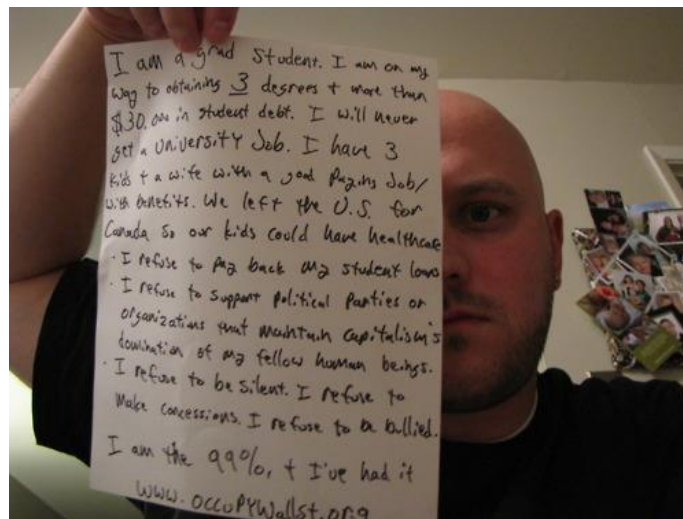 I am a grad student. I am on my
way to obtaining 3 degrees + more than
$30,000 in student debt. I will never
get a UNIVERSITY Job. I have 3
kids + a wife with a good paying Job/
with benefits. We left the U.S. for
Canada so our kids could have healthcare
· I refuse to pay back my student loans
· I refuse to support political parties or
organizations that maintain capitalism's
domination of my fellow human beings.
· I refuse to be silent. I refuse to
make concessions. I refuse to be bullied.
I am the 99%, + I've had it
www.occuPYWallst.org